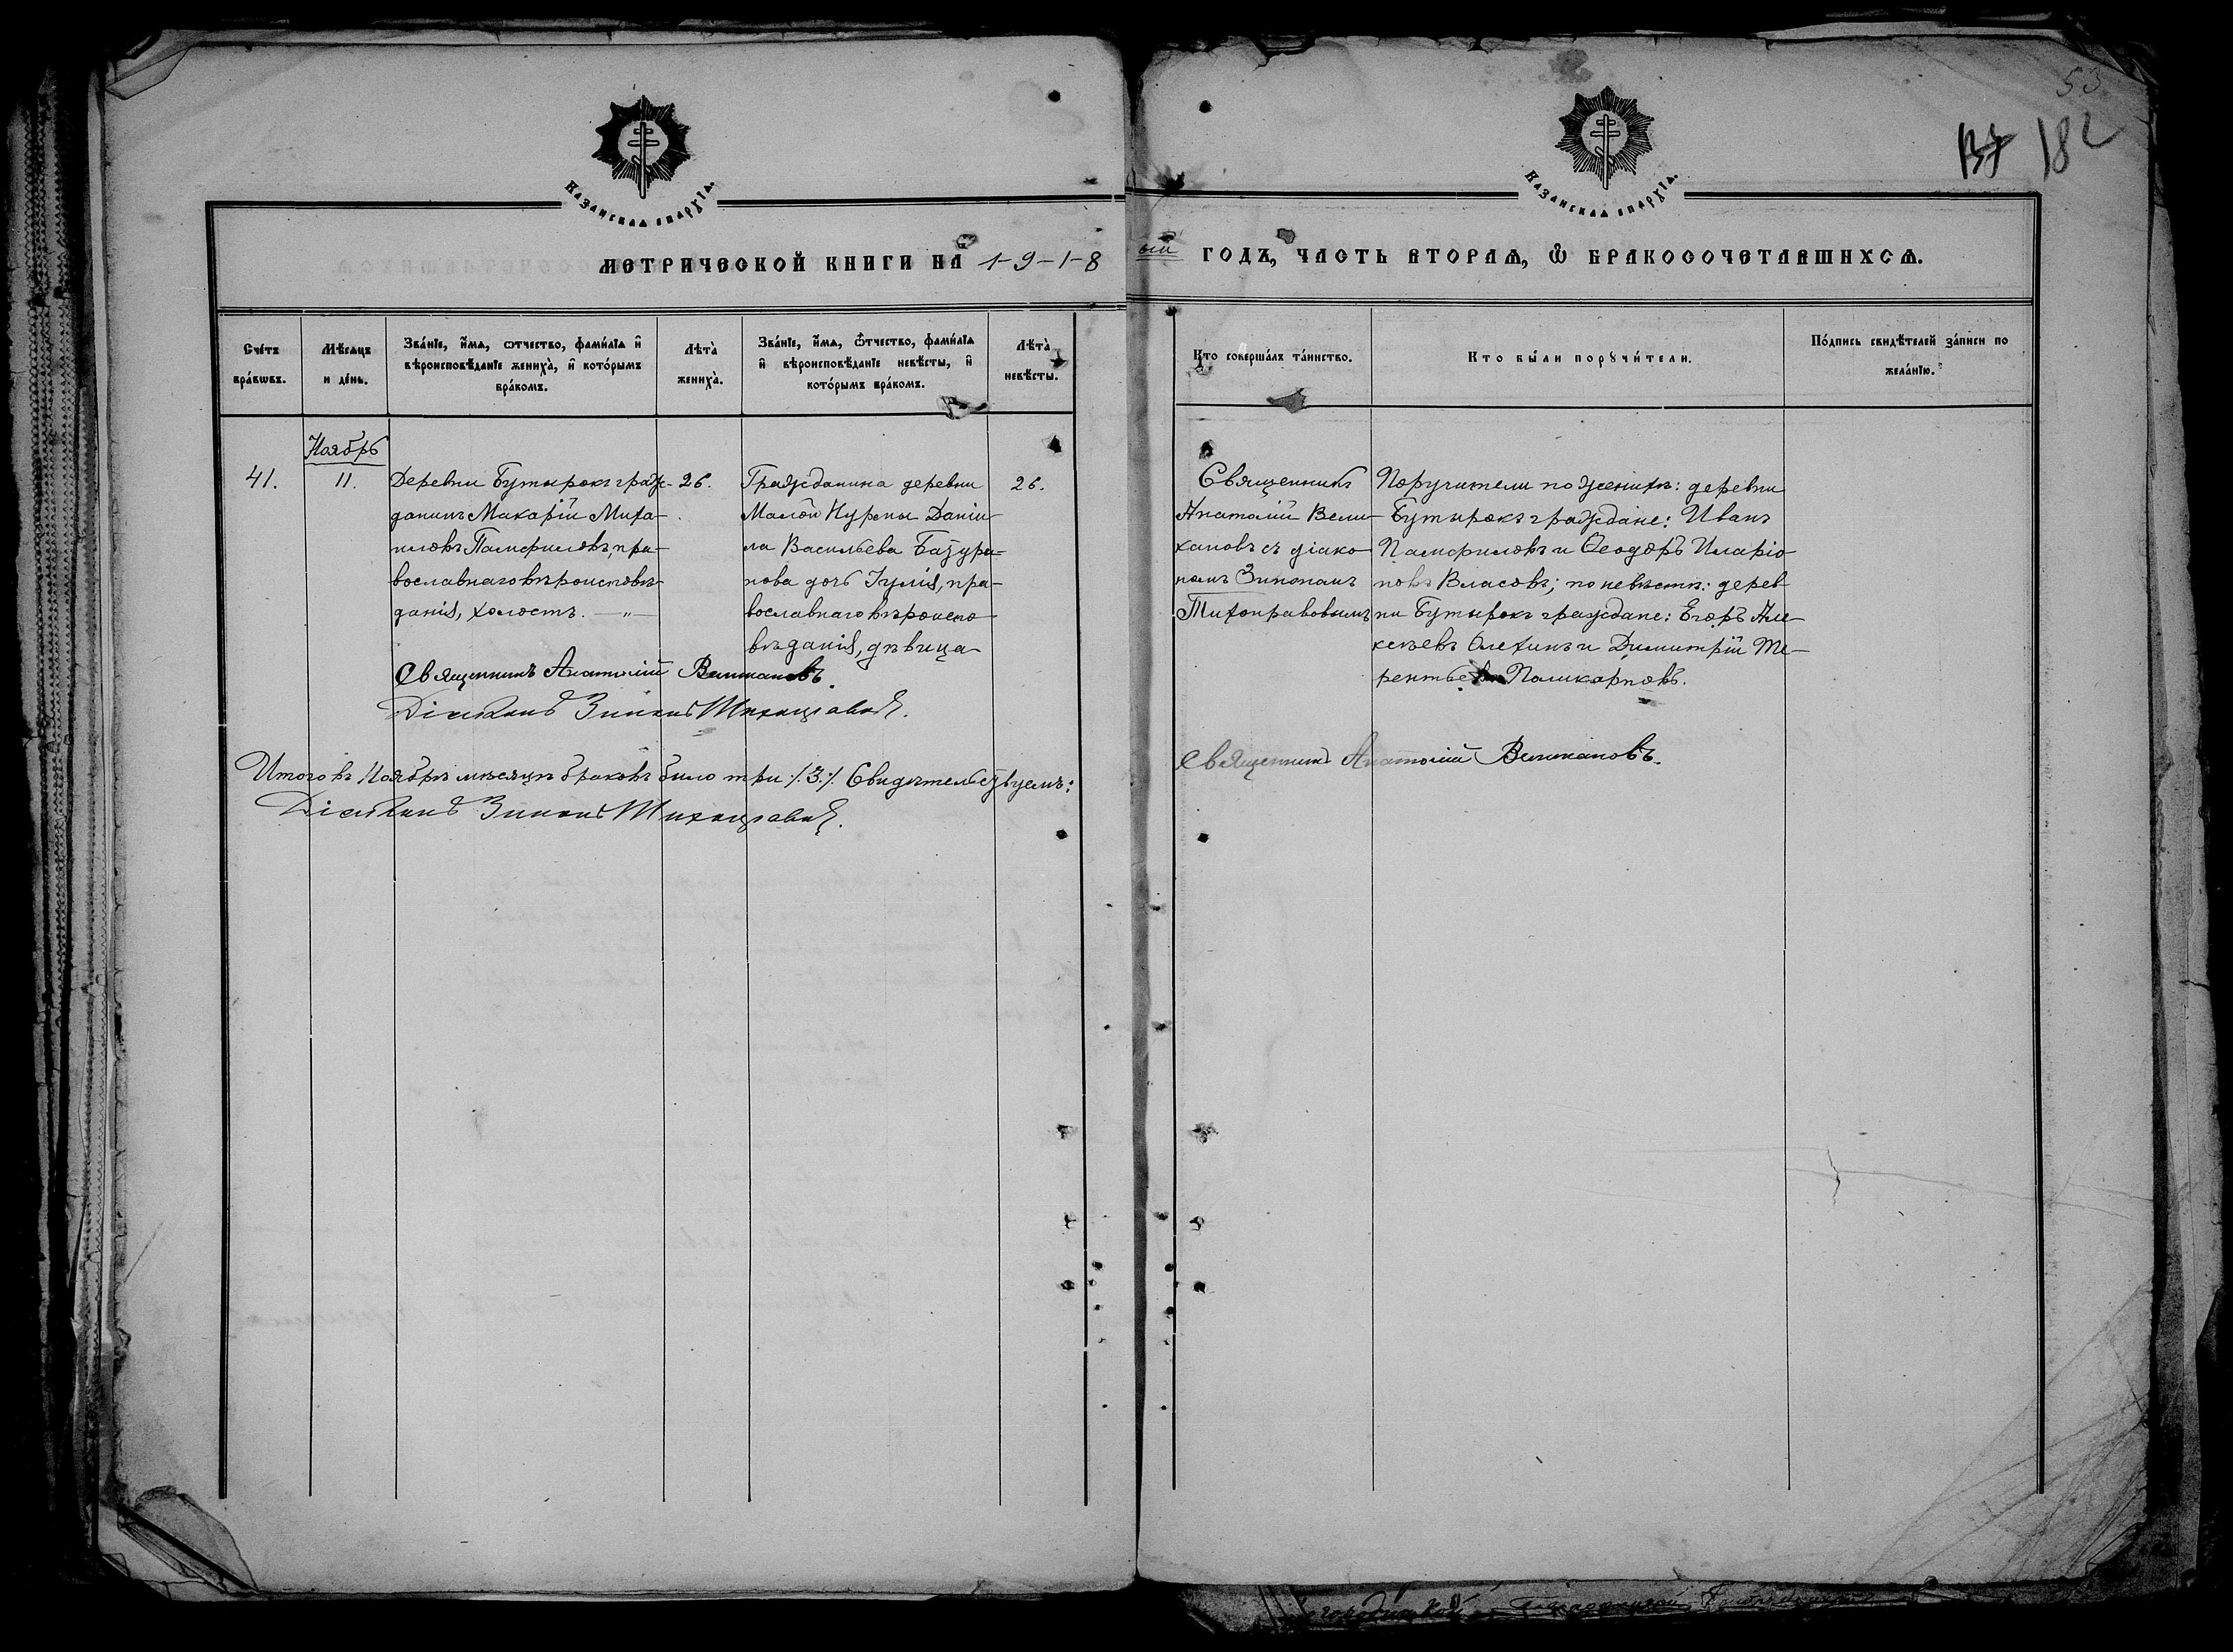 53
182
КАЗАНСКАѦ ЕПАРХЇА.
КАЗАНСКАѦ ЕПАРХЇА.
МЕТРИЧЕСКОЙ КНИГИ НА 1-9-1-8
ый ГОДЪ, ЧАСТЬ ВТОРАѦ, Ѽ БРАКОСОЧЕТАВШИХСѦ.
Сче́тъ
бра́кѡвъ.
Мѣ́сѧцъ
и де́нь.
Зва́нїе, и҆́мѧ, ѻтчество, фами́лїѧ и҆
вѣроисповѣ́данїе жениха̀, и҆ кото́рымъ
бра́комъ.
Лѣта̀
жениха̀.
Зва́нїе, и҆́мѧ, ѻ҆́тчество, фами́лїѧ
и҆ вѣроисповѣ́данїе невѣ́сты, и҆
кото́рымъ бра́комъ.
Лѣта̀
невѣ́сты.
Кто соверша́лъ та́инство.
Кто бы́ли порꙋчи́тели.
По́дпись свидѣ́телей за́писи по
жела́нїю.
Ноябрь
41.
11.
Деревни Бутырокъ граж-
данинъ Макарій Миха-
иловъ Памфиловъ, пра-
вославнаго вѣроисповѣ-
данія, холостъ. — „ —
26.
Гражданина деревни
Малой Нурмы Дании-
ла Васильева Базура-
нова дочь Іулія, пра-
вославнаго вѣроиспо-
вѣданія, дѣвица
26.
Священникъ
Анатолій Вели-
кановъ съ діако-
номъ Зинономъ
Тихонравовымъ
Поручители по женихѣ: деревни
Бутырокъ граждане: Иванъ
Памфиловъ и Ѳеодоръ Иларіо-
новъ Власовъ; по невѣстѣ: дерев-
ни Бутырокъ граждане: Егоръ Але-
ксѣевъ Алехинъ и Димитрій Те-
рентьевъ Поликарповъ.
Священникъ Анатолій Великановъ.
Діаконъ Зинонъ Тихонравовъ.
Итого въ Ноябрѣ мѣсяцѣ браковъ было три ⁒ 3 ⁒ Свидѣтельствуемъ:
Священникъ Анатолій Великановъ.
Діаконъ Зинонъ Тихонравовъ.